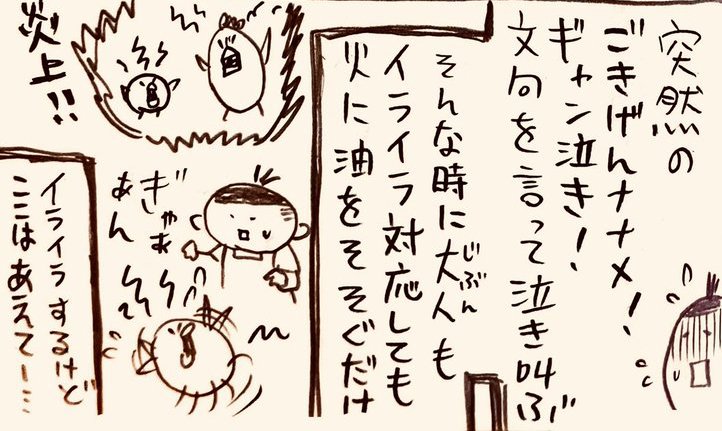 突然の
ごきげんナナメ！
ギャン泣き！
文句を言って泣き叫ぶ
そんな時に大人も
じぶん
イライラ対応しても
火に油をそそぐだけ
炎上!!
ぎゃぁ
あん
イライラするけど
ここはあえてー…